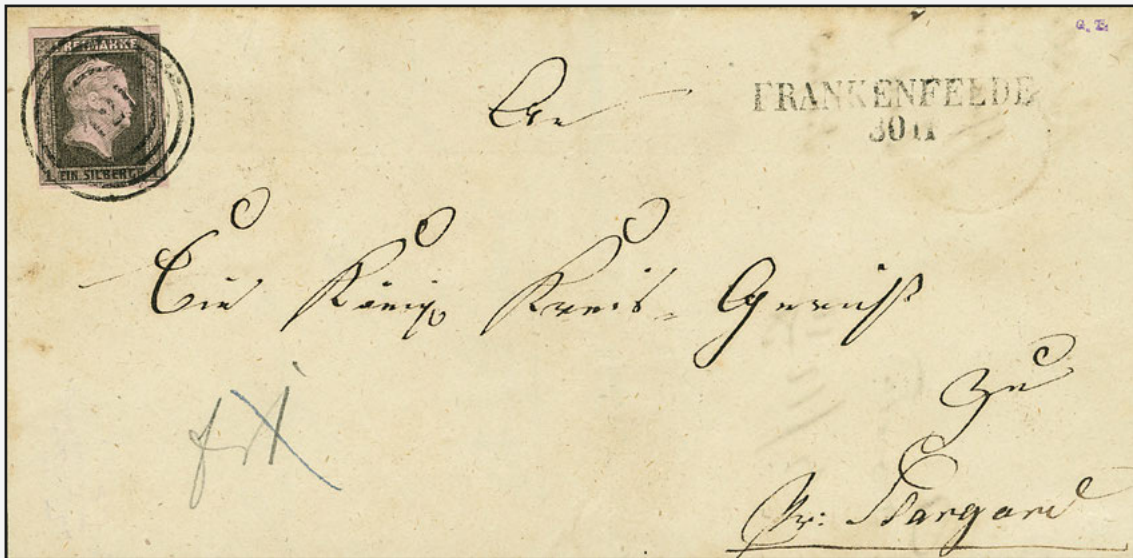 FREIMARKE
1 EIN SILBERG
G. B.
FRANKENFELDE
30 11
An
Ein Königl Kreis-Gericht
zu
Pr: Stargard